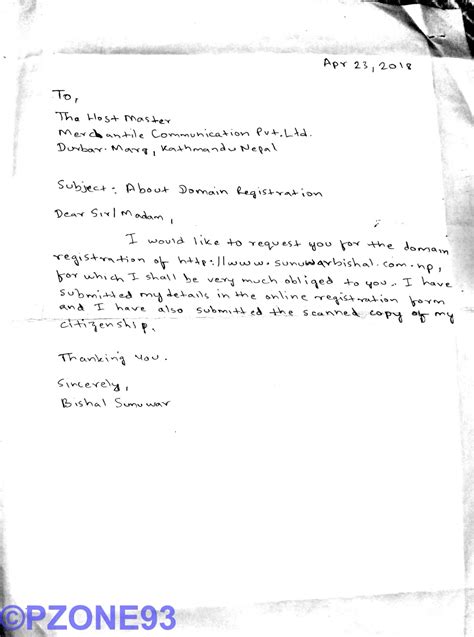 Apr 23, 2018
To,
The Host Master
Merchantile Communication Pvt. Ltd.
Durbar Marg, Kathmandu Nepal
Subject: About Domain Registration
Dear Sir/Madam,
I would like to request you for the domain
registration of http://www.sunuwarbishal.com.np,
for which I shall be very much obliged to you. I have
submitted my details in the online registration form
and I have also submitted the scanned copy of my
citizenship.
Thanking you.
Sincerely,
Bishal Sunuwar
©PZONE93